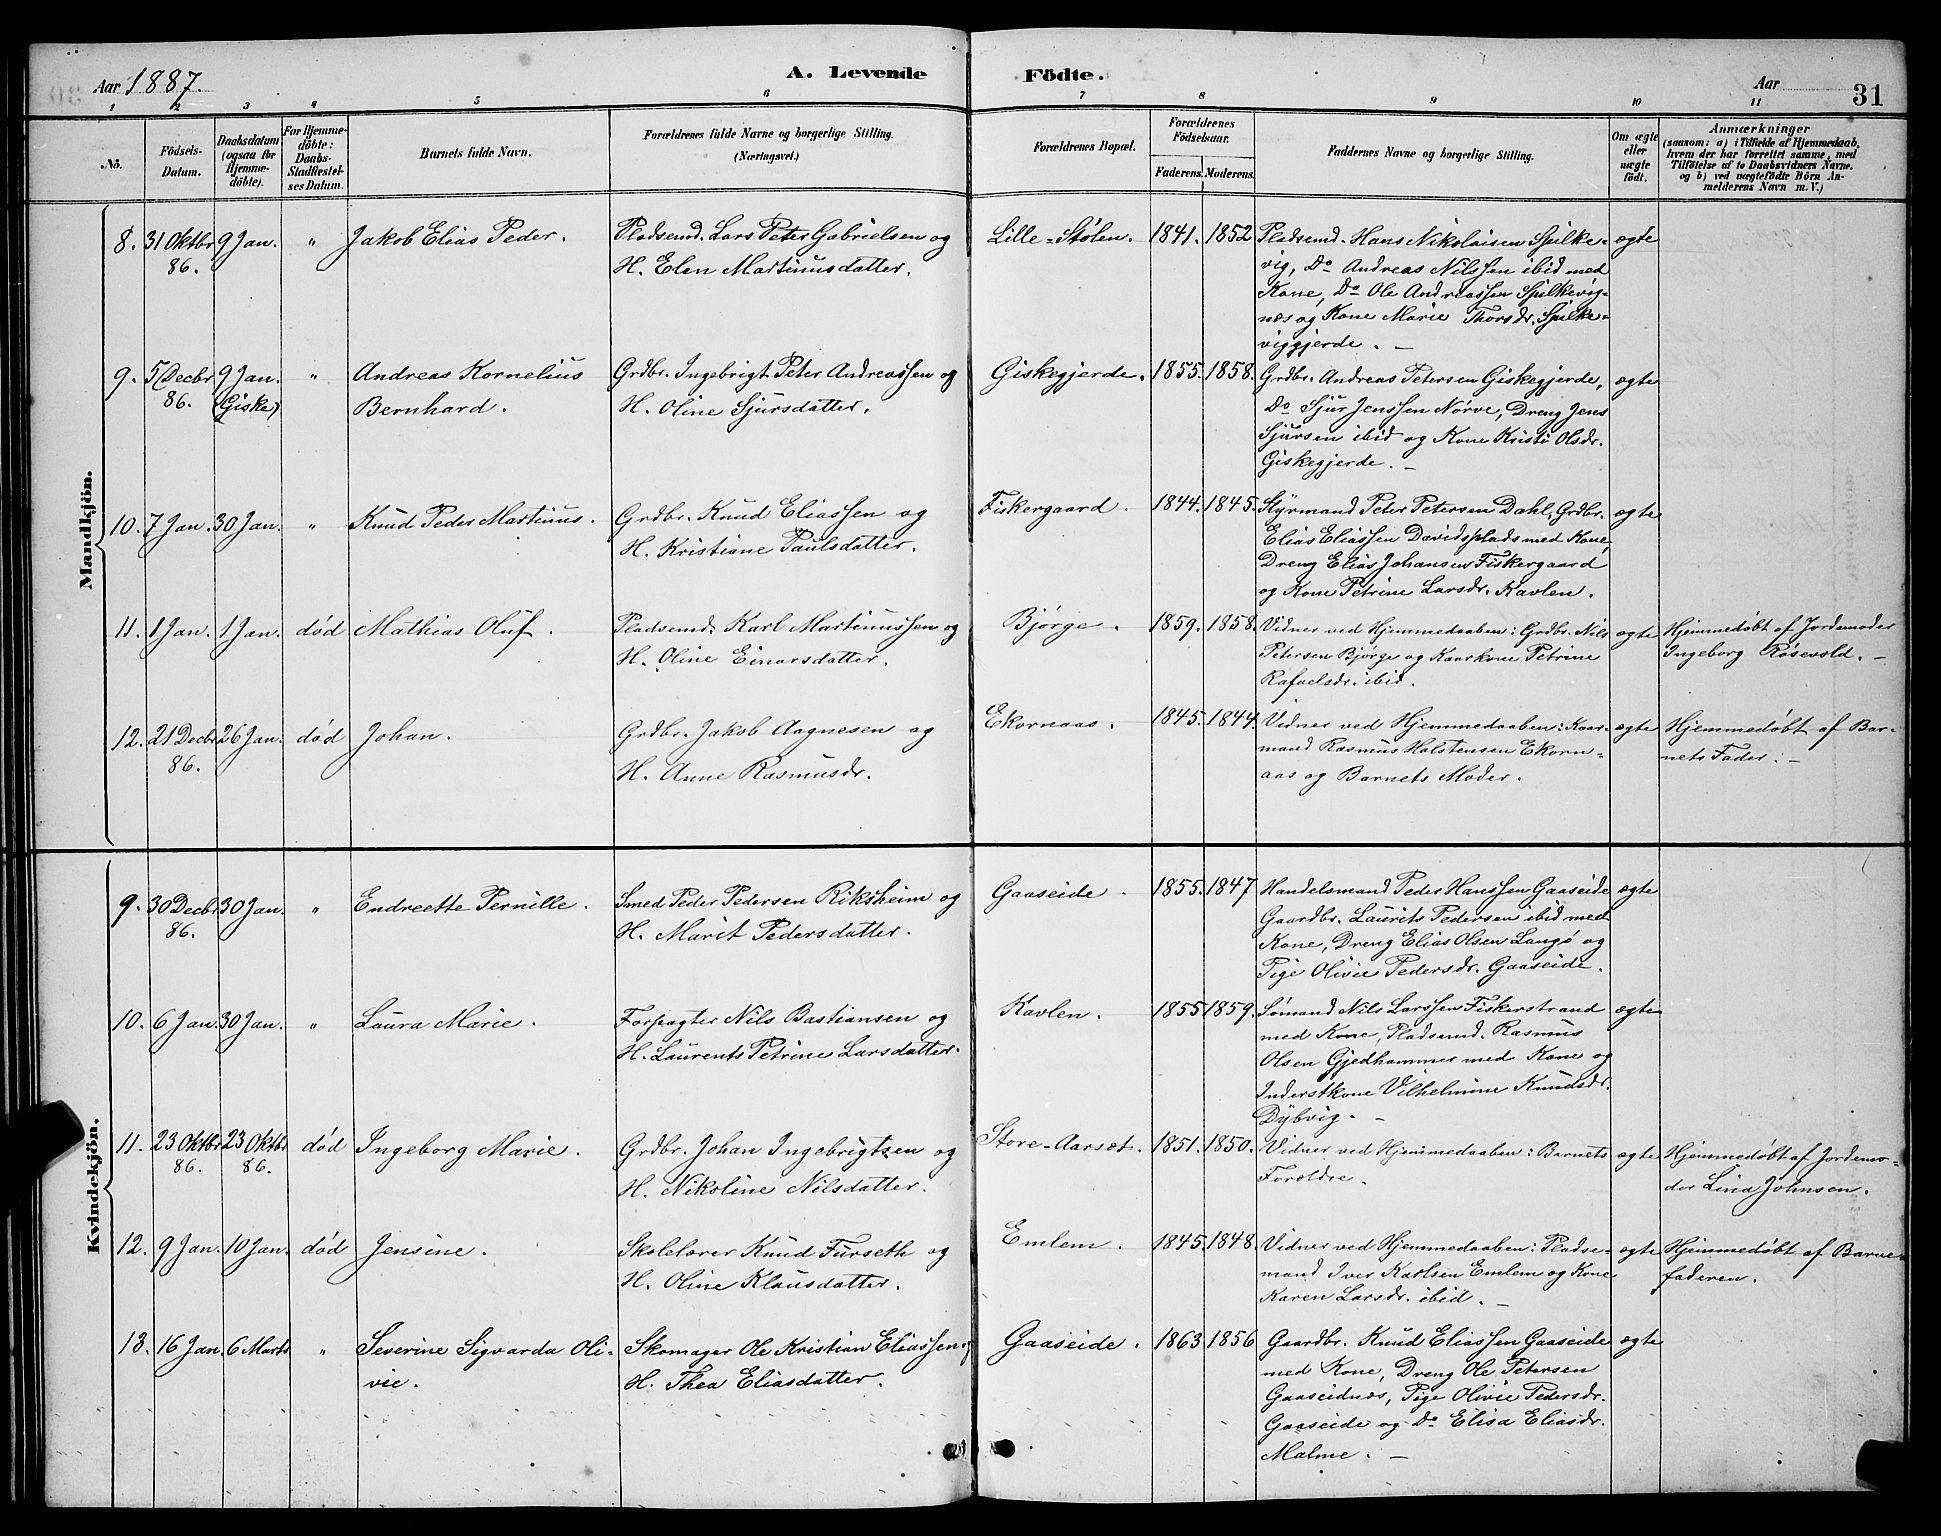 Aar 1887.
A. Levende Födte.
Aar
31
1 2 3 4 5 6 7 8 9 10 11
No.
Födsels-Datum.
Daabsdatum (ogsaa for Hjemme-döbte).
For Hjemme-döbte: Daabs-Stadfæstel-ses Datum.
Barnets fulde Navn.
Forældrenes fulde Navne og borgerlige Stilling. (Næringsvei.)
Forældrenes Bopæl.
Forældrenes Födselsaar.
Faderens. Moderens.
Faddernes Navne og borgerlige Stilling.
Om ægte eller uægte födt.
Anmærkninger
(saasom: a) i Tilfælde af Hjemmedaab, hvem der har forrettet samme, med Tilföielse af to Daabsvidners Navne. og b) ved uægtefødte Börn An-melderens Navn m. V.)
Mandkjön.
8. 31 Oktbr 86. 9 Jan. " Jakob Elias Peder. Pladsemd. Lars Peter Gabrielsen og
H. Elen Martinusdatter.
Lille-Stølen. 1841. 1852 Pladsemd. Hans Nikolaisen Spilke-
vig, Do Andreas Nilssen ibid med
Kone, Do Ole Andreassen Spilkevig-
næs og Kone Marie Thorsdr. Spilke-
viggjerde. —
ægte
9. 5 Decbr 86. 9 Jan. (Giske) " Andreas Kornelius
Bernhard.
Grdbr. Ingebrigt Peter Andreassen og
H. Oline Sjursdatter.
Giskegjerde. 1855. 1858. Grdbr. Andreas Petersen Giskegjerde,
Do Sjur Jenssen Nørve, Dreng Jens
Sjursen ibid og Kone Kristi Olsdr.
Giskegjerde. —
ægte
10. 7 Jan. 30 Jan. " Knud Peder Martinus. Grdbr. Knud Eliassen og
H. Kristiane Paulsdatter.
Fiskergaard. 1844. 1845. Styrmand Peter Petersen Dahl, Grdbr.
Elias Eliassen Davidsplads med Kone,
Dreng Elias Johansen Fiskergaard
og Kone Petrine Larsdr. Kavlen.
ægte
11. 1 Jan. 1 Jan. død Mathias Oluf. Pladsemd. Karl Martinussen og
H. Oline Einarsdatter.
Bjørge. 1859. 1858. Vidner ved Hjemmedaaben: Grdbr. Nils
Petersen Bjørge og Kaarkone Petrine
Rafaelsdr. ibid.
ægte Hjemmedøbt af Jordemoder
Ingeborg Røsevold. —
12. 21 Decbr 86. 26 Jan. død Johan. Grdbr. Jakob Aagnesen og
H. Anne Rasmusdr.
Ekornaas. 1845. 1844. Vidner ved Hjemmedaaben: Kaar-
mand Rasmus Halstensen Ekorn-
aas og Barnets Moder.
ægte Hjemmedøbt af Bar-
nets Fader. —
Kvindekjön.
9. 30 Decbr 86. 30 Jan. " Endreette Pernille. Smed Peder Pedersen Riksheim og
H. Marit Pedersdatter.
Gaaseide. 1855. 1847 Handelsmand Peder Hanssen Gaaseide
Gaardbr. Laurits Pedersen ibid med
Kone, Dreng Elias Olsen Langø og
Pige Olivie Pedersdr. Gaaseide.
ægte
10. 6 Jan. 30 Jan. " Laura Marie. Forpagter Nils Bastiansen og
H. Laurents Petrine Larsdatter.
Kavlen. 1855 1859. Sømand Nils Larssen Fiskerstrand
med Kone, Pladsemd. Rasmus
Olsen Gjedhammer med Kone og
Inderstkone Vilhelmine Knudsdr.
Dybvig. —
ægte
11. 23 Oktbr 86. 23 Oktbr 86. død Ingeborg Marie. Grdbr. Johan Ingebrigtsen og
H. Nikoline Nilsdatter.
Store-Aarsæt. 1851. 1850. Vidner ved Hjemmedaaben: Barnets
Forældre.
ægte Hjemmedøbt af Jordemo-
der Lina Johnsen.
12. 9 Jan. 10 Jan. død Jensine. Skolelærer Knud Furseth og
H. Oline Klausdatter.
Emlem. 1845. 1848. Vidner ved Hjemmedaaben: Pladse-
mand Iver Karlsen Emlem og Kone
Karen Larsdr. ibid. —
ægte Hjemmedøbt af Barne-
faderen.
13. 16 Jan. 6 Marts " Severine Sigvarda Oli-
vie.
Skomager Ole Kristian Eliassen og
H. Thea Eliasdatter.
Gaaseide. 1863 1856 Gaardbr. Knud Eliassen Gaaseide
med Kone, Dreng Ole Petersen
Gaaseidnæs, Pige Olivie Pedersdr.
Gaaseide og Do Elisa Eliasdr.
Malme. —
ægte